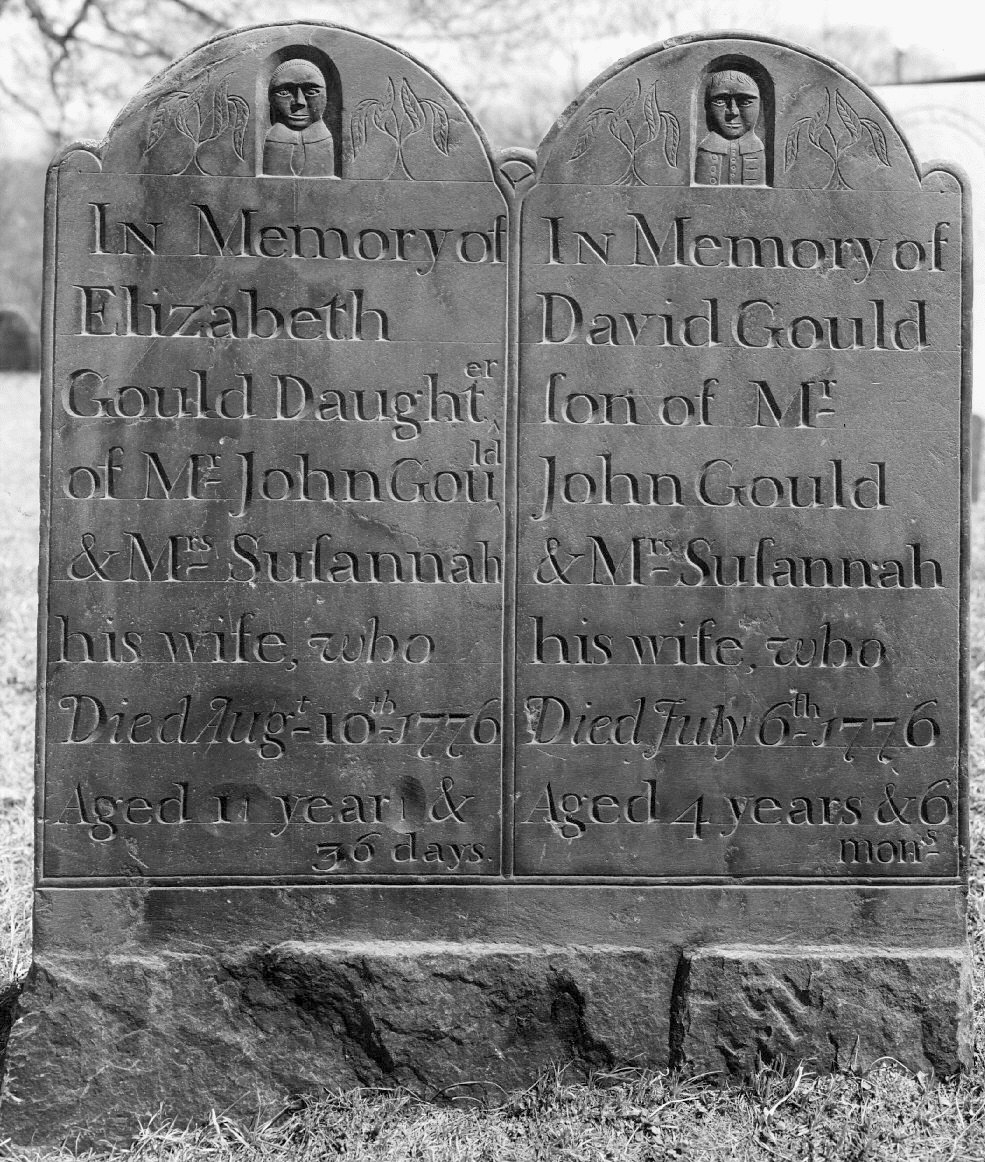 In Memory of
Elizabeth
Gould Daught.er
of Mr John Gould
& Mrs Suſannah
his wife, who
Died Augt 10th 1776
Aged 11 year &
36 days.
In Memory of
David Gould
ſon of Mr
John Gould
& Mrs Suſannah
his wife, who
Died July 6th 1776
Aged 4 years & 6
mons